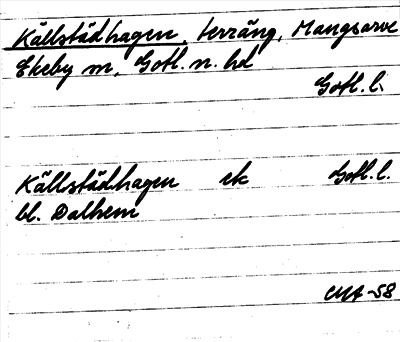 Källstädhagen, terräng, Mangsarve
Ekeby sn, Gotl. n. hd
Gotl. l.
Källstädhagen ek Gotl. l.
bl. Dalhem
-58